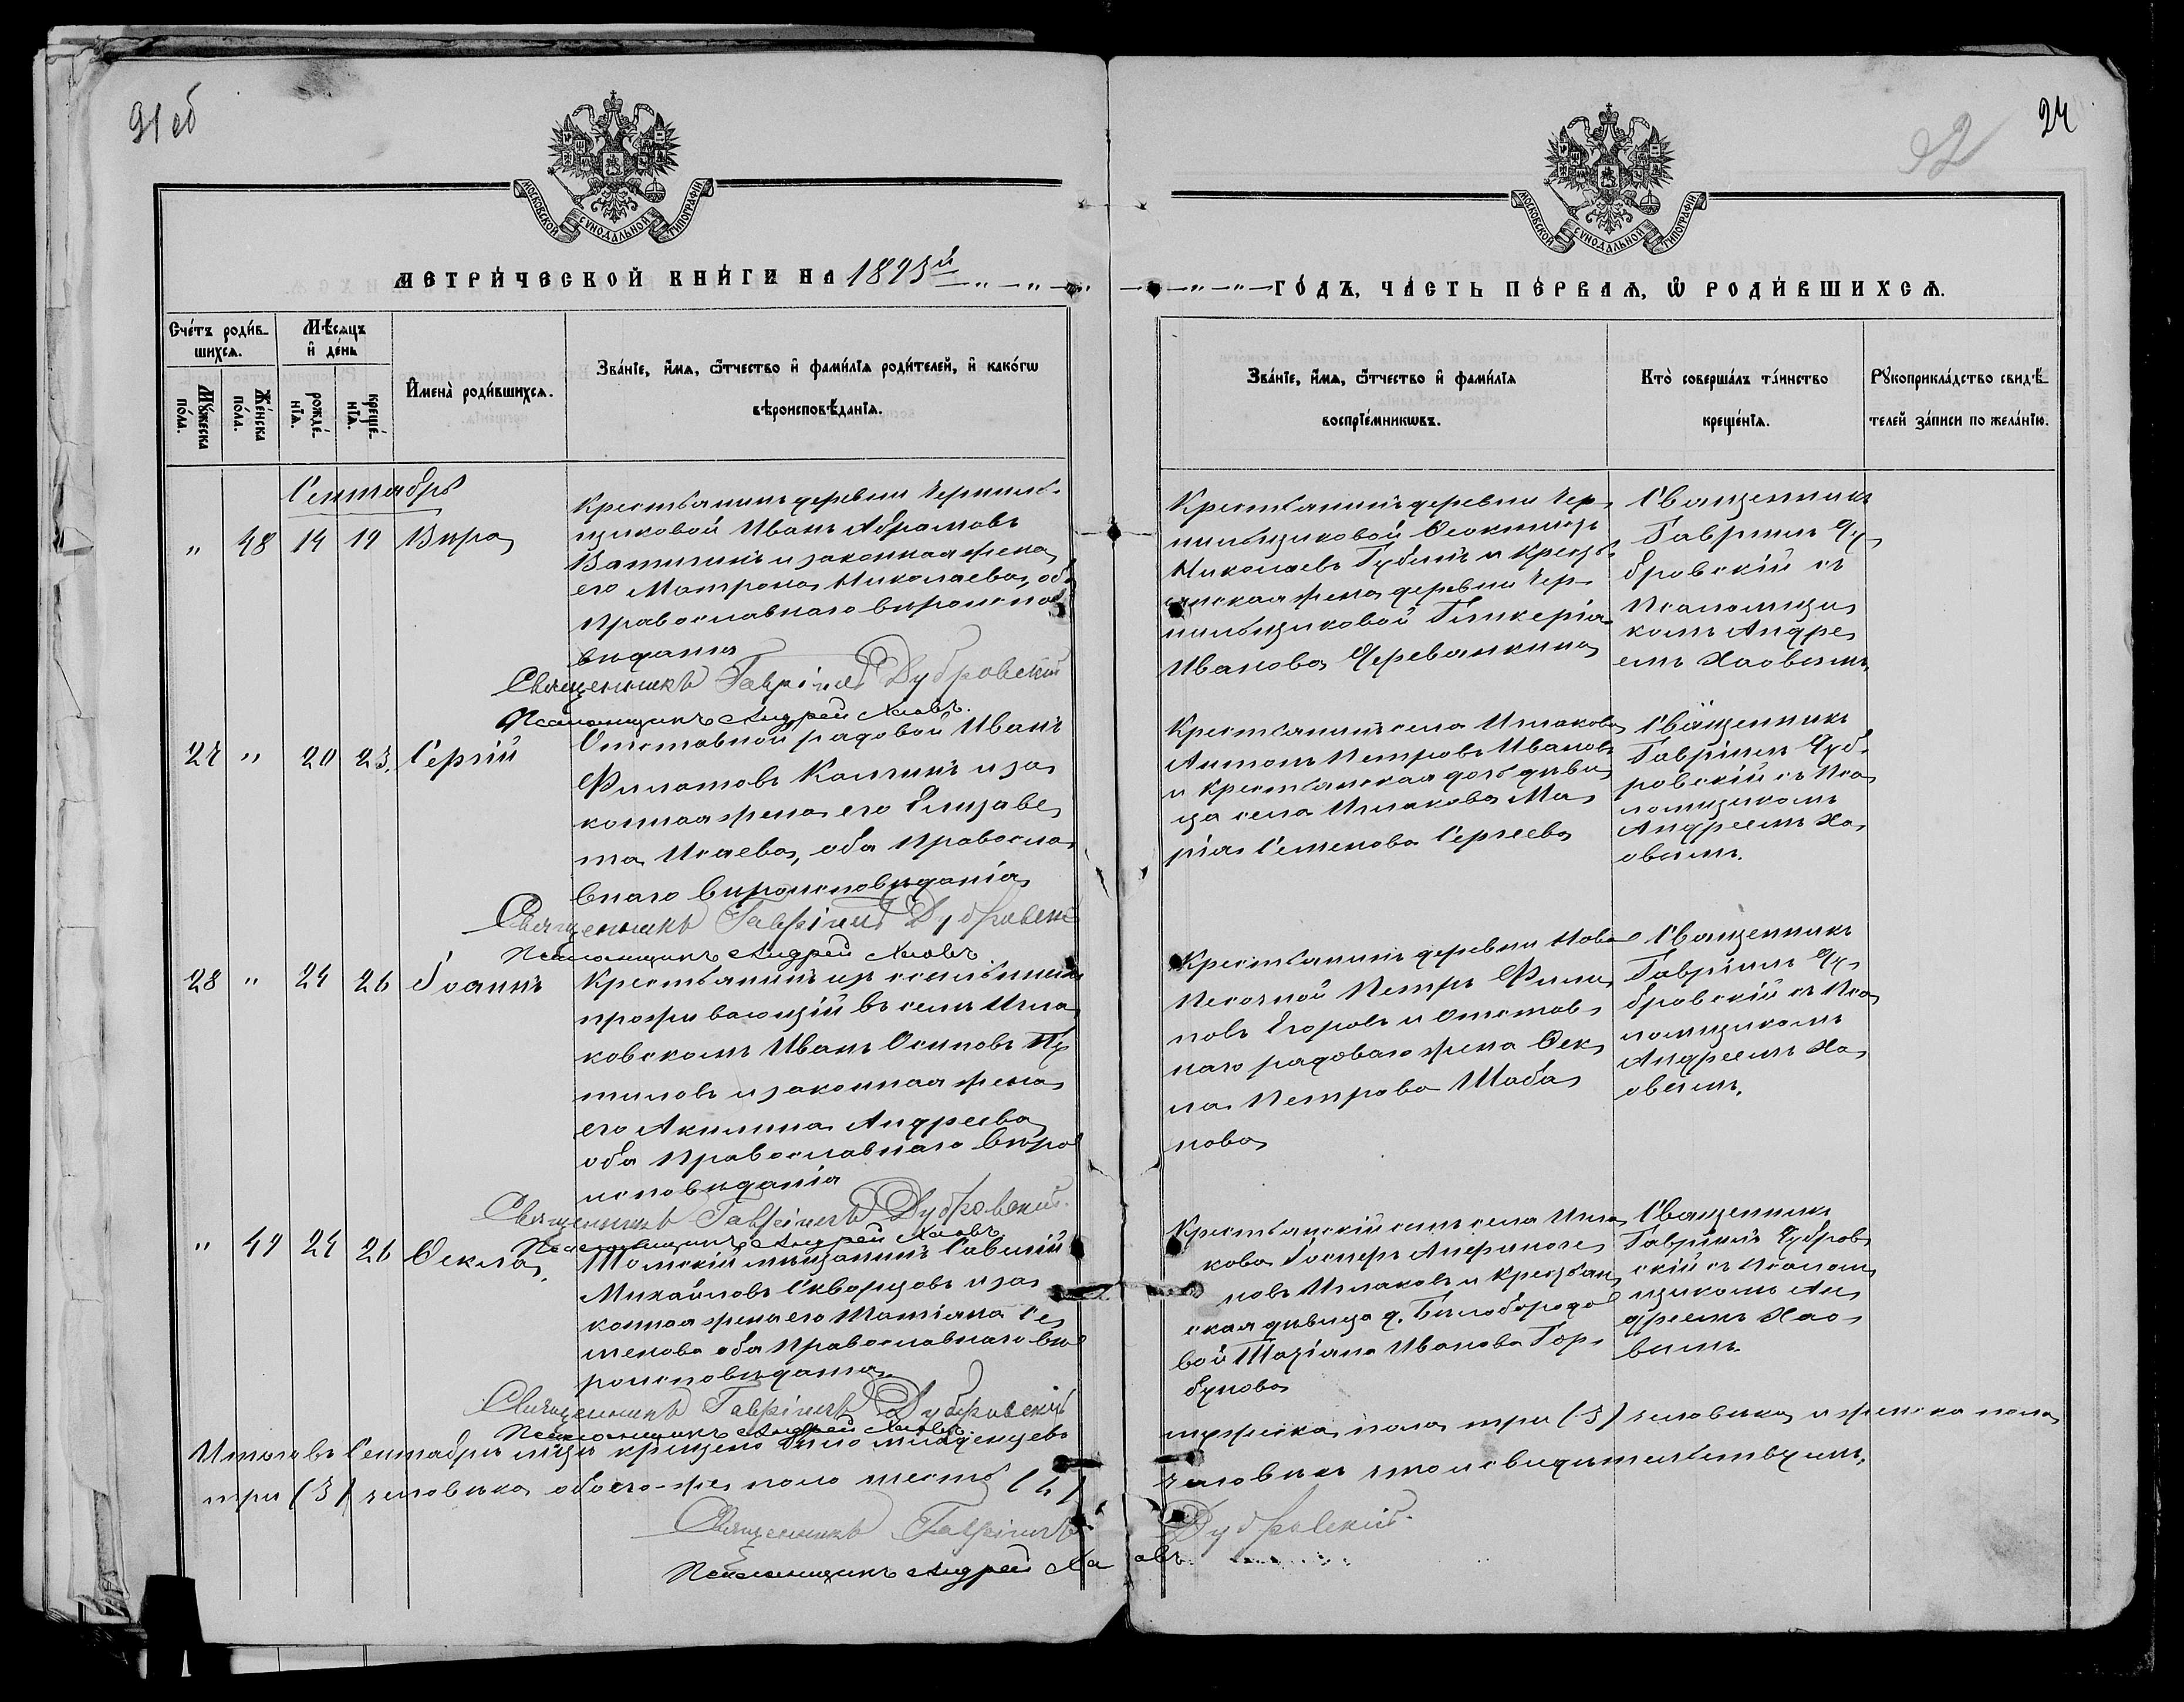 91 об
24
92
МОСКОВСКОЙ СѴНОДАЛЬНОЙ ТИПОГРАФІИ
МОСКОВСКОЙ СѴНОДАЛЬНОЙ ТИПОГРАФІИ
МЕТРИ́ЧЕСКОЙ КНИ́ГИ НА 1893й
ГО́ДЪ, ЧА́СТЬ ПЕ́РВАѦ, Ѡ҆ РОДИ́ВШИХСѦ.
Сче́тъ роди́в-
шихсѧ.
Мꙋ́жеска
по́ла.
Же́нска
по́ла.
Мѣ́сѧцъ
и҆ де́нь
рожде́-
нїѧ.
креще́-
нїѧ.
И҆мена̀ роди́вшихсѧ.
Зва́нїе, и҆́мѧ, ѻ҆́тчество и҆ фами́лїѧ роди́телей, и҆ како́гѡ
вѣроисповѣ́данїѧ.
Зва́нїе, и҆́мѧ, ѻ҆́тчество и҆ фами́лїѧ
воспрїе́мникѡвъ.
Кто̀ соверша́лъ та́инство
креще́нїѧ.
Рꙋкоприкла́дство свидѣ́-
телей за́писи по жела́нїю.
Сентябрь
" 48 14 19 Вѣра
Крестьянинъ деревни Черниль-
щиковой Иванъ Абрамовъ
и законная жена
его Матрона Николаева, оба
православнаго вѣроиспо
вѣданія
Священникъ Гавріилъ Дубровскій
Псаломщикъ Андрей Хаовъ.
Крестьянинъ деревни Чер-
нильщиковой Ѳеоктистъ
Николаевъ Губинъ и Кресть
янская жена деревни Чер-
нильщиковой Гликерія
Иванова Череванкина
Священникъ
Гавріилъ Ду
бровскій съ
Псаломщи
комъ Андре
емъ Хаовымъ.
27 " 20 23. Сергій
Отставной рядовой Иванъ
Филатовъ и за
конная жена его Елизаве
та Исаева, оба православ
внаго вѣроисповѣданія
Священникъ Гавріилъ Дубровскій
Псаломщикъ Андрей Хаовъ
Крестьянинъ села Ишакова
Антонъ Петровъ Ивановъ
и крестьянская дочь дѣви
ца села Ишакова Ма
рія Семенова Сергеева
Священникъ
Гавріилъ Дуб-
ровскій съ Пса
ломщикомъ
Андреемъ Ха
овымъ.
28 " 24 26 Іоаннъ
Крестьянинъ изъ ссыльныхъ
проживающій въ селѣ Иша
ковскомъ Иванъ Осиповъ Пу
тиловъ и законная жена
его Акилина Андреева
оба православнаго вѣро
исповѣданія
Священникъ Гавріилъ Дубровскій.
Псаломщикъ Андрей Хаовъ
Крестьянинъ деревни Ново
Песочной Петръ Фили
повъ Егоровъ и отстав
наго рядоваго жена Ѳек
ла Петрова Шаба
нова
Священникъ
Гавріилъ Ду
бровскій съ Пса
ломщикомъ
Андреемъ Ха
овымъ.
" 49 24 26 Ѳекла,
Томскій мѣщанинъ Савелій
Михайловъ Скворцовъ и за
конная жена его Татіана Се
менова оба православнаго вѣ
роисповѣданія
Священникъ Гавріилъ Дубровскій
Псаломщикъ Андрей Хаовъ.
Крестьянскій сынъ села Иша
кова Іосифъ
новъ Ишаковъ и крестьян
ская дѣвица д. Бѣлобородо
вой Татіана Иванова Гор
бунова
Священникъ
Гавріилъ Дубров
скій съ Псалом
щикомъ Ан
дреемъ Хао
вымъ.
Итого въ Сентябрѣ мѣсяцѣ крещено было младенцевъ
мужеска пола три (3) человѣка и женска пола
три (3) человѣка обоего-же пола шесть (6)
человѣкъ что и свидѣтельствуемъ.
Священникъ Гавріилъ Дубровскій.
Псаломщикъ Андрей Хаовъ.